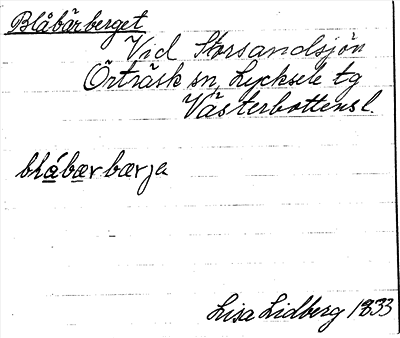 Blåbärberget
Vid Storsandsjön
Örträsk sn, Lycksele tg
Västerbottensl.
blåbærbærja
Lisa Lidberg 1933